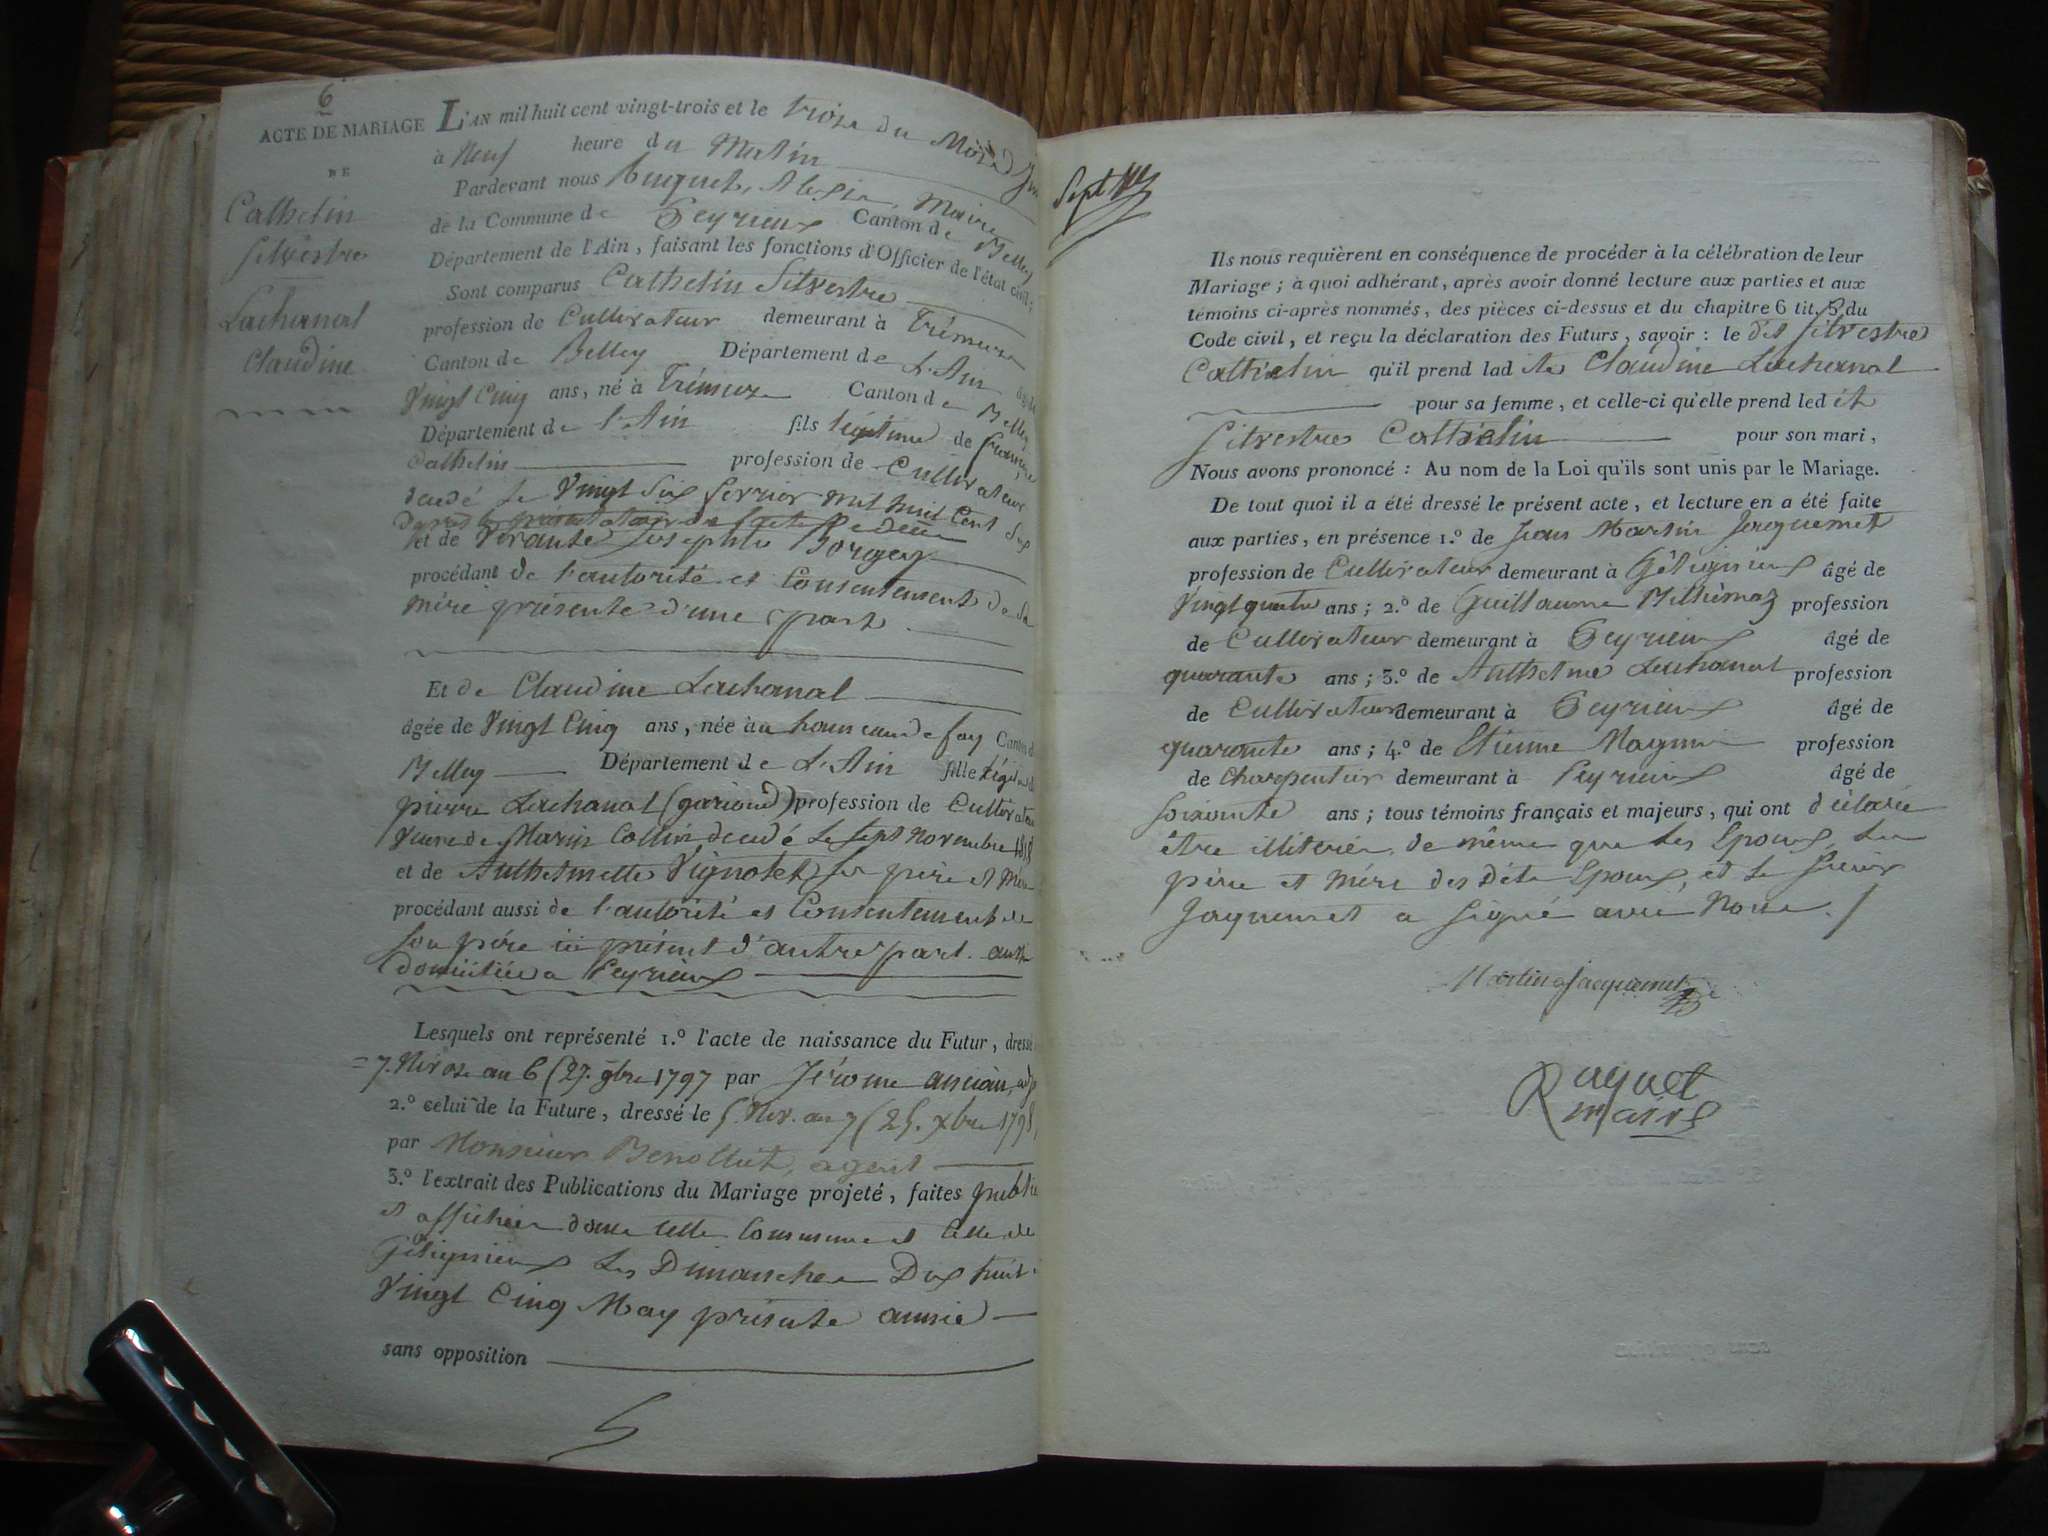 6
ACTE DE MARIAGE
DE
Cathelin
Silvestre
Lachanal
Claudine
L'AN mil huit cent vingt-trois et le treize du Mois de
à Neuf heure du Matin
Pardevant nous Buquet, Alexis, Maire
de la Commune de Peyrieux Canton de Belley
Département de l'Ain, faisant les fonctions d'Officier de l'état civil,
Sont comparus Cathelin Silvestre
profession de Cultivateur demeurant à
Canton de Belley Département de L'Ain âgé de
Vingt Cinq ans, né à Canton de Belley
Département de l'Ain fils légitime de françois
Cathelin profession de Cultivateur
décédé le Vingt Six fevrier mil huit Cent Six
et de vivante Josephte Borgey
procédant de l'autorité et Consentement de Sa
mère présente d'une part
Et de Claudine Lachanal
âgée de Vingt Cinq ans, née au hameau de fay Canton de
Belley Département de L'Ain fille légitime de
pierre Lachanal (garioud) profession de Cultivateur
Veuve de Marin Collin décédé le sept Novembre 1818
et de Anthelmette Vignollet, ses père et Mère
procédant aussi de l'autorité et Consentement de
Son père ici présent d'autre part. aussi
domiciliée a Peyrieux
Lesquels ont représenté 1.º l'acte de naissance du Futur, dressé
=7. Nivose an 6 (27. xbre 1797 par Jérome ancian, adj
2.º celui de la Future, dressé le 5. Niv. an 7 (25. xbre 1798,
par Monsieur Benollut, agent
3.º l'extrait des Publications du Mariage projeté, faites publiées
et affichées dans cette Commune et Celle de
Gélignieux les Dimanches Dix huit
Vingt Cinq May présente année
sans opposition
Sept
Ils nous requièrent en conséquence de procéder à la célébration de leur
Mariage ; à quoi adhérant, après avoir donné lecture aux parties et aux
témoins ci-après nommés, des pièces ci-dessus et du chapitre 6 tit. 5 du
Code civil, et reçu la déclaration des Futurs, savoir : le dit Silvestre
Cathelin qu'il prend lad ite Claudine Lachanal
pour sa femme, et celle-ci qu'elle prend led it
Silvestre Cathelin pour son mari,
Nous avons prononcé : Au nom de la Loi qu'ils sont unis par le Mariage.
De tout quoi il a été dressé le présent acte, et lecture en a été faite
aux parties, en présence 1.º de Jean Martin Jaquemet
profession de Cultivateur demeurant à Gélignieux âgé de
Vingt quatre ans ; 2.º de Guillaume Billiemaz profession
de Cultivateur demeurant à Peyrieux âgé de
quarante ans ; 3.º de Anthelme Lachanal profession
de Cultivateur demeurant à Peyrieux âgé de
quarante ans ; 4.º de Etienne Magnin profession
de Charpentier demeurant à Peyrieux âgé de
Soixante ans ; tous témoins français et majeurs, qui ont déclaré
être illiterés, de même que les Epoux, les
père et mère des dits Epoux, et le Sieur
Jaquemet a Signé avec Nous. /
Martin Jacquemet
Buquet
maire